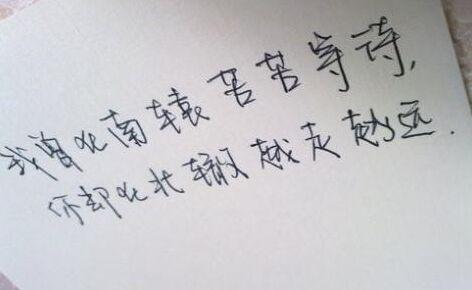 我曾在南辕苦苦等待,
你却在北辙越走越远.